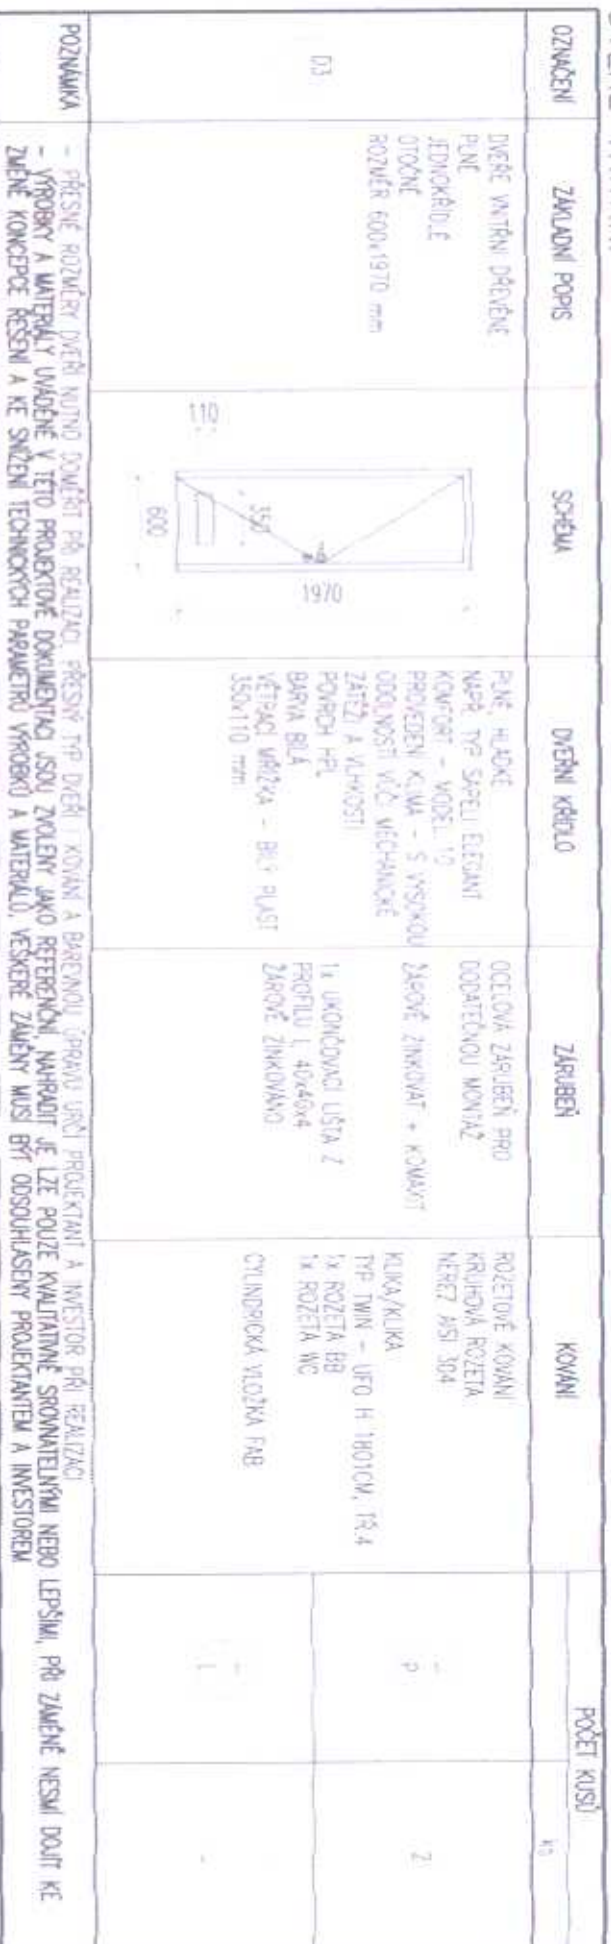 OZNAČENÍ
ZÁKLADNÍ POPIS
SCHÉMA
DVEŘNÍ KŘÍDLO
ZÁRUBEŇ
KOVÁNÍ
POČET KUSŮ
D3
DVEŘE VNITŘNÍ DŘEVĚNÉ
PLNÉ
JEDNOKŘÍDLÉ
OTOČNÉ
ROZMĚR 600x1970 mm
1970
350
600
110
PLNÉ, HLADKÉ
NAPŘ. TYP SAPELI ELEGANT
KOMFORT - MODEL 10
PROVEDENÍ KLIMA - S VYSOKOU
ODOLNOSTÍ VŮČI MECHANICKÉ
ZÁTĚŽI A VLHKOSTI
POVRCH HPL
BARVA BÍLÁ
VĚTRACÍ MŘÍŽKA - BÍLÝ PLAST
350x110 mm
OCELOVÁ ZÁRUBEŇ PRO
DODATEČNOU MONTÁŽ
ŽÁROVĚ ZINKOVAT + KOMAXIT
1x UKONČOVACÍ LIŠTA Z
PROFILU L 40x40x4
ŽÁROVĚ ZINKOVÁNO
ROZETOVÉ KOVÁNÍ
KRUHOVÁ ROZETA
NEREZ AISI 304
KLIKA/KLIKA
TYP TWIN - UFO H 1801CM, TŘ.4
1x ROZETA BB
1x ROZETA WC
CYLINDRICKÁ VLOŽKA FAB
P
2
L
-
POZNÁMKA
- PŘESNÉ ROZMĚRY DVEŘÍ NUTNO DOMĚŘIT PŘI REALIZACI, PŘESNÝ TYP DVEŘÍ I KOVÁNÍ A BAREVNOU ÚPRAVU URČÍ PROJEKTANT A INVESTOR PŘI REALIZACI
- VÝROBKY A MATERIÁLY UVÁDĚNÉ V TÉTO PROJEKTOVÉ DOKUMENTACI JSOU ZVOLENY JAKO REFERENČNÍ, NAHRADIT JE LZE POUZE KVALITATIVNĚ SROVNATELNÝMI NEBO LEPŠÍMI, PŘI ZÁMĚNĚ NESMÍ DOJÍT KE
ZMĚNĚ KONCEPCE ŘEŠENÍ A KE SNÍŽENÍ TECHNICKÝCH PARAMETRŮ VÝROBKŮ A MATERIÁLŮ, VEŠKERÉ ZÁMĚNY MUSÍ BÝT ODSOUHLASENY PROJEKTANTEM A INVESTOREM